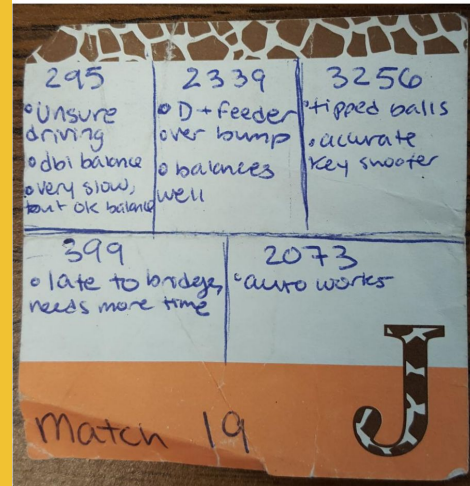 295
• Unsure
driving
• dbl balance
• very slow,
but ok balance
2339
• D + feeder
over bump
• balances
well
3256
• tipped balls
• accurate
key shooter
399
• late to bridge,
needs more time
2073
• auto works
Match 19
J